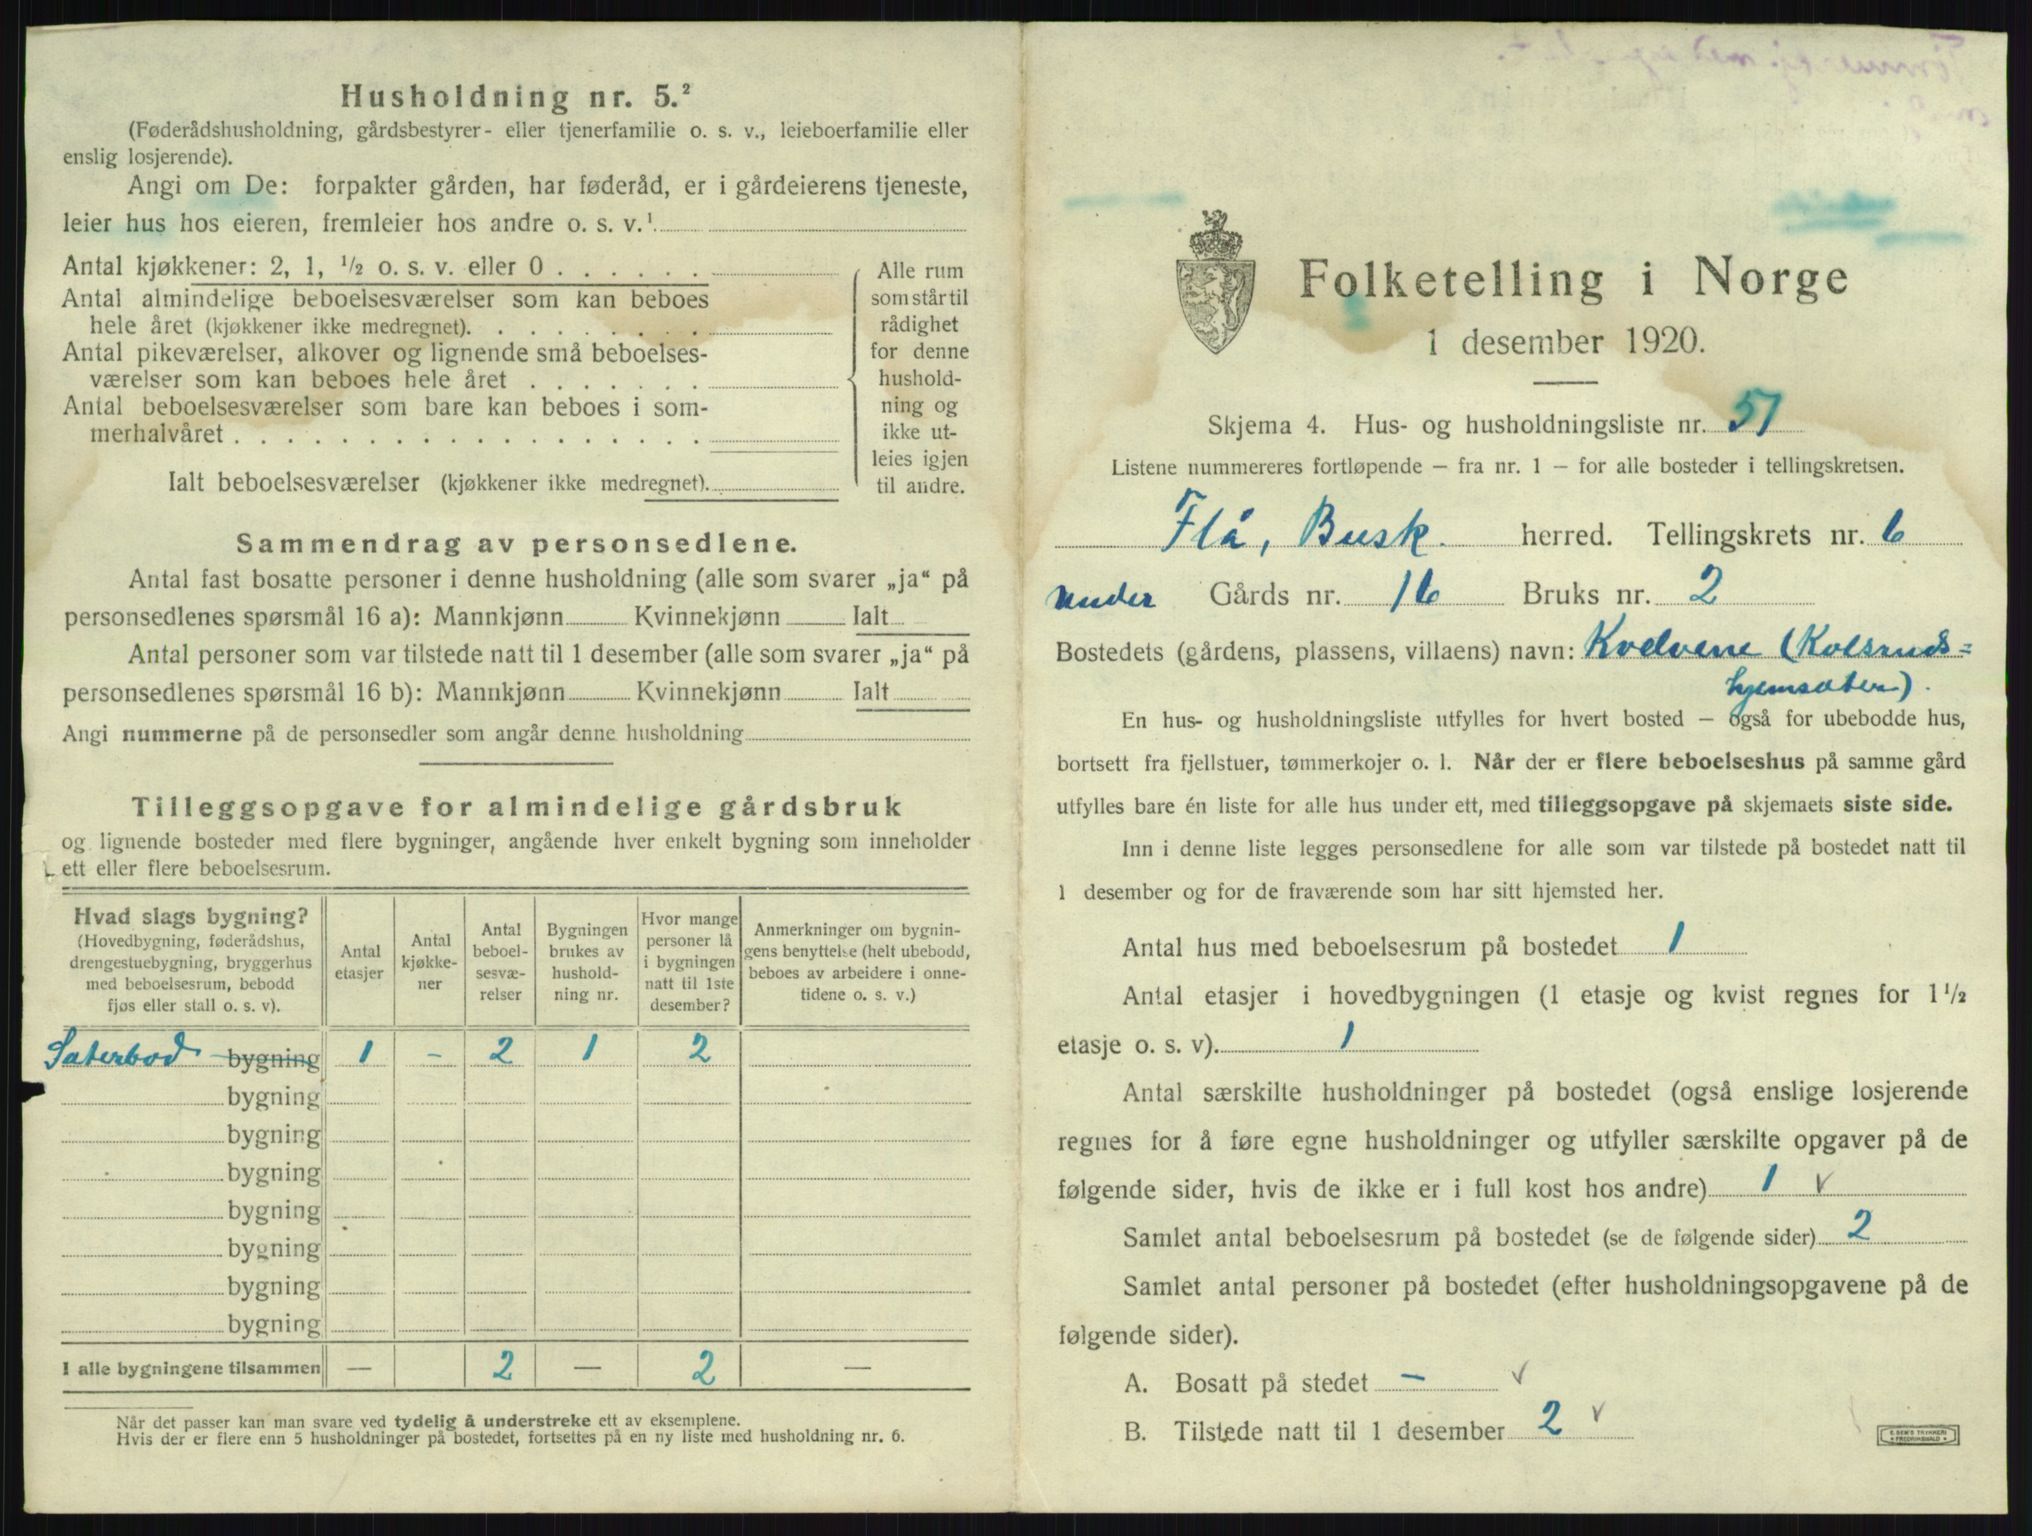 Husholdning nr. 5.²
(Føderådshusholdning, gårdsbestyrer- eller tjenerfamilie o. s. v., leieboerfamilie eller
enslig losjerende).
Angi om De: forpakter gården, har føderåd, er i gårdeierens tjeneste,
leier hus hos eieren, fremleier hos andre o. s. v.¹
Antal kjøkkener: 2, 1, ½ o. s. v. eller 0 . . . . . .
Antal almindelige beboelsesværelser som kan beboes
hele året (kjøkkener ikke medregnet). . . . . . . . .
Antal pikeværelser, alkover og lignende små beboelses-
værelser som kan beboes hele året . . . . . . .
Antal beboelsesværelser som bare kan beboes i som-
merhalvåret . . . . . . . . . . . . . . . . . .
Ialt beboelsesværelser (kjøkkener ikke medregnet).
Alle rum
som står til
rådighet
for denne
hushold-
ning og
ikke ut-
leies igjen
til andre.
Sammendrag av personsedlene.
Antal fast bosatte personer i denne husholdning (alle som svarer „ja“ på
personsedlenes spørsmål 16 a): Mannkjønn Kvinnekjønn Ialt
Antal personer som var tilstede natt til 1 desember (alle som svarer „ja“ på
personsedlenes spørsmål 16 b): Mannkjønn Kvinnekjønn Ialt
Angi nummerne på de personsedler som angår denne husholdning
Tilleggsopgave for almindelige gårdsbruk
og lignende bosteder med flere bygninger, angående hver enkelt bygning som inneholder
ett eller flere beboelsesrum.
Hvad slags bygning?
(Hovedbygning, føderådshus,
drengestuebygning, bryggerhus
med beboelsesrum, bebodd
fjøs eller stall o. s. v).
Antal
etasjer
Antal
kjøkke-
ner
Antal
beboel-
sesvæ-
relser
Bygningen
brukes av
hushold-
ning nr.
Hvor mange
personer lå
i bygningen
natt til 1ste
desember?
Anmerkninger om bygnin-
gens benyttelse (helt ubebodd,
beboes av arbeidere i onne-
tidene o. s. v.)
Sæterbod bygning 1 - 2 1 2
bygning
bygning
bygning
bygning
bygning
bygning
bygning
I alle bygningene tilsammen — 2 — 2 —
Når det passer kan man svare ved tydelig å understreke ett av eksemplene.
Hvis der er flere enn 5 husholdninger på bostedet, fortsettes på en ny liste med husholdning nr. 6.
Folketelling i Norge
1 desember 1920.
Skjema 4. Hus- og husholdningsliste nr. 51
Listene nummereres fortløpende — fra nr. 1 — for alle bosteder i tellingskretsen.
Flå, Busk. herred. Tellingskrets nr. 6
under Gårds nr. 16 Bruks nr. 2
Bostedets (gårdens, plassens, villaens) navn: Kvelvene (Kolsruds=
hjemsæter).
En hus- og husholdningsliste utfylles for hvert bosted — også for ubebodde hus,
bortsett fra fjellstuer, tømmerkojer o. l. Når der er flere beboelseshus på samme gård
utfylles bare én liste for alle hus under ett, med tilleggsopgave på skjemaets siste side.
Inn i denne liste legges personsedlene for alle som var tilstede på bostedet natt til
1 desember og for de fraværende som har sitt hjemsted her.
Antal hus med beboelsesrum på bostedet 1
Antal etasjer i hovedbygningen (1 etasje og kvist regnes for 1 ½
etasje o. s. v). 1
Antal særskilte husholdninger på bostedet (også enslige losjerende
regnes for å føre egne husholdninger og utfyller særskilte opgaver på de
følgende sider, hvis de ikke er i full kost hos andre) 1 v
Samlet antal beboelsesrum på bostedet (se de følgende sider) 2
Samlet antal personer på bostedet (efter husholdningsopgavene på de
følgende sider).
A. Bosatt på stedet - v
B. Tilstede natt til 1 desember 2 v